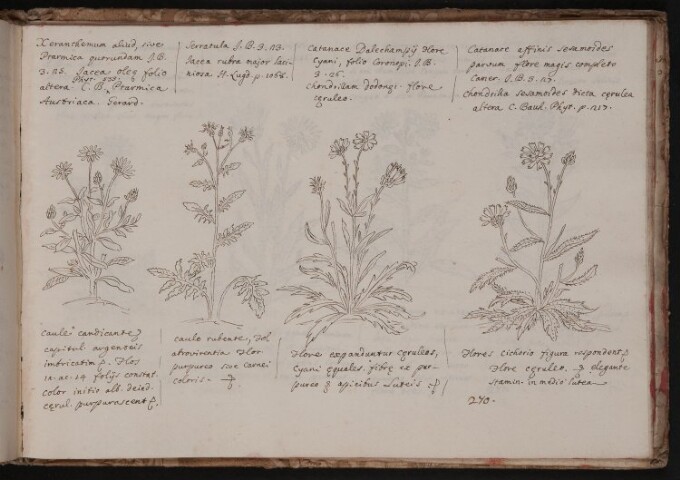 Xeranthemum aliud, sive
Ptarmica quorundam J.B.
3. 25. Jacea oleę folio
Phyt. 535. 2
altera C.B. Ptarmica
Austriaca Gerard.
Serratula J.B. 3. 23.
Jacea rubra major laci-
niosa H. Lugd. p. 1066.
Catanace Dalechampij flore
Cyani, folio Coronopi. J.B.
3. 26.
Chondrillam dodonęi flore
cęruleo.
Catanace affinis sesamoides
parvum flore magis completo
Camer. J.B. 3. 27.
Chondrilla sesamoides dicta cęrulea
altera C. Bauh. Phyt. p. 213.
Caule candicante
capitul argenteis
intricatim flos
12. aut 14 folijs constat
color initio alb. deind.
cęrul. purpurascent
Caule rubente, fol
atrovirentia flor
purpureo sive carnei
coloris
Flore expanduntur cęruleus,
Cyani ęquales. fibrę ex pur-
pureo apicibus Luteis
Flores Cichorio figura respondent
Flore cęruleo. elegante
stamin. in medio lutea
270.